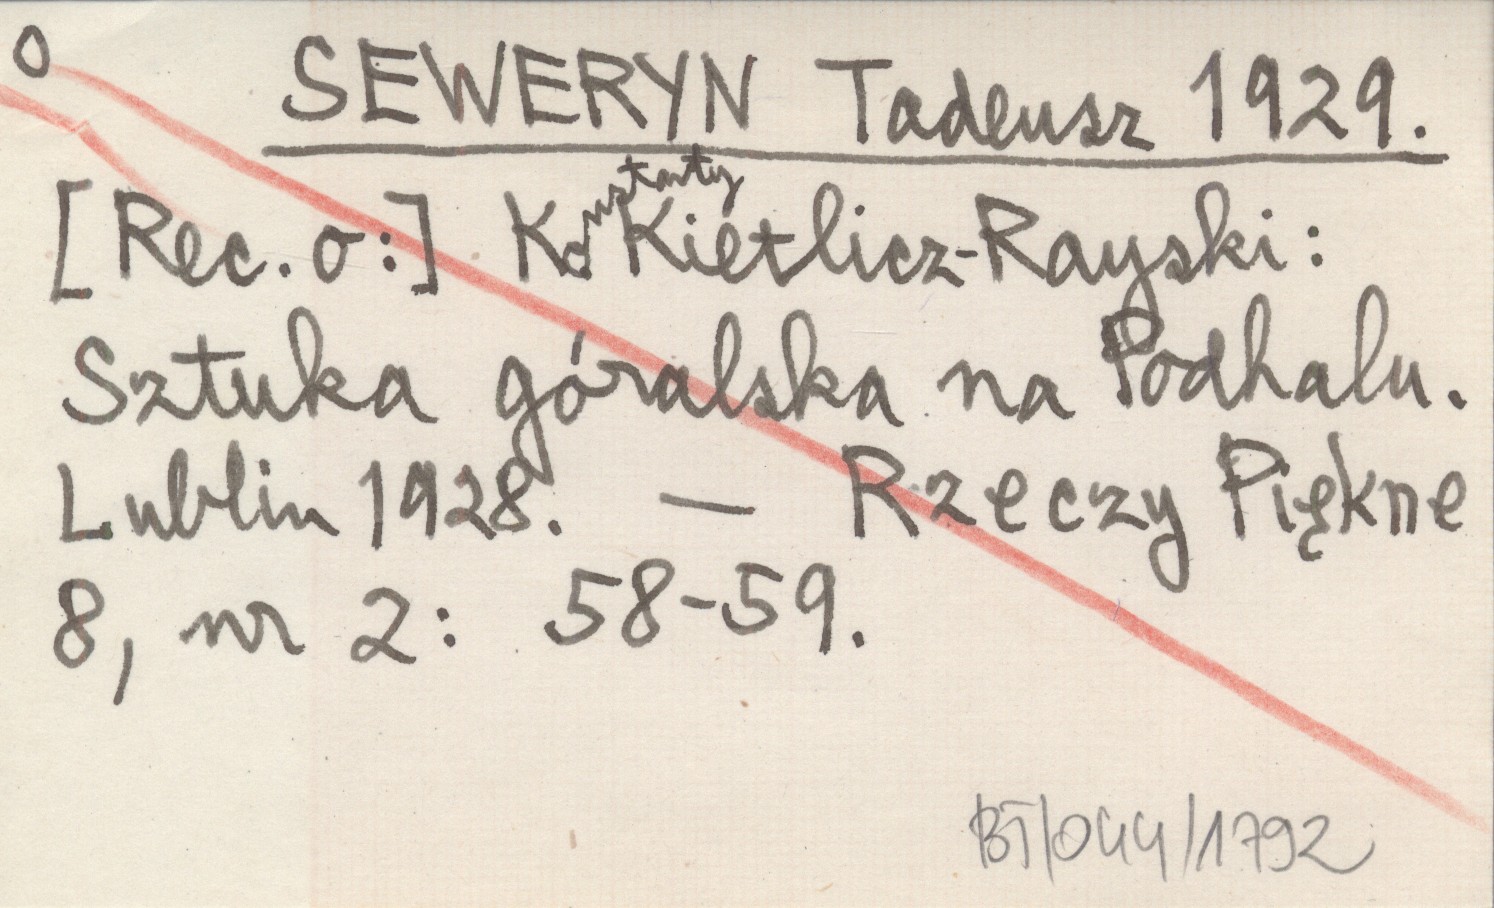 O
SEWERYN Tadeusz 1929.
[Rec. o:] Konstanty Kietlicz-Rayski:
Sztuka góralska na Podhalu.
Lublin 1928. — Rzeczy Piękne
8, nr 2: 58-59.
BT/044/1792